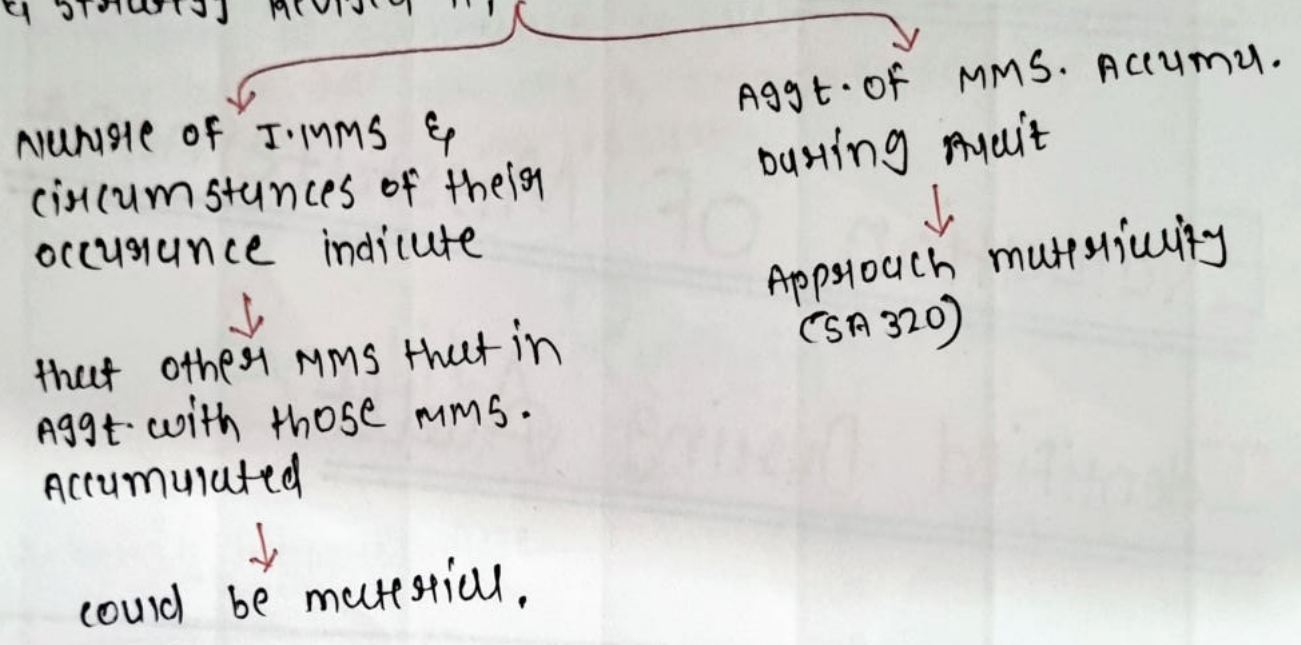 & strategy revised if,
Nature of I.MMS &
circumstances of their
occurance indicate
that other MMS that in
Aggt. with those MMS.
Accumulated
could be material.
Aggt. of MMS. Accumu.
During Audit
Approach materiality
(SA 320)